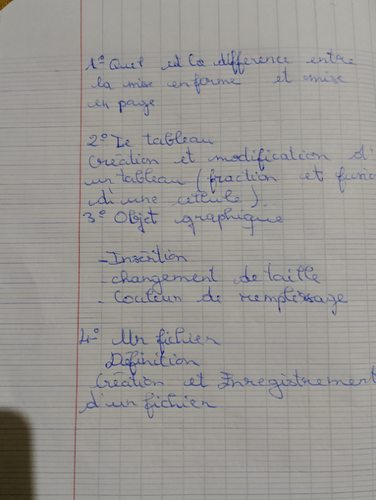 1° Quel est la différence entre
la mise en forme et mise
en page
2° Le tableau
Création et modification d'
un tableau (fraction et fusio
d'une cellule).
3° Objet graphique
- Insertion
- changement de taille
- Couleur de remplissage
4° Un fichier
Définition
Création et Enregistrement
d'un fichier